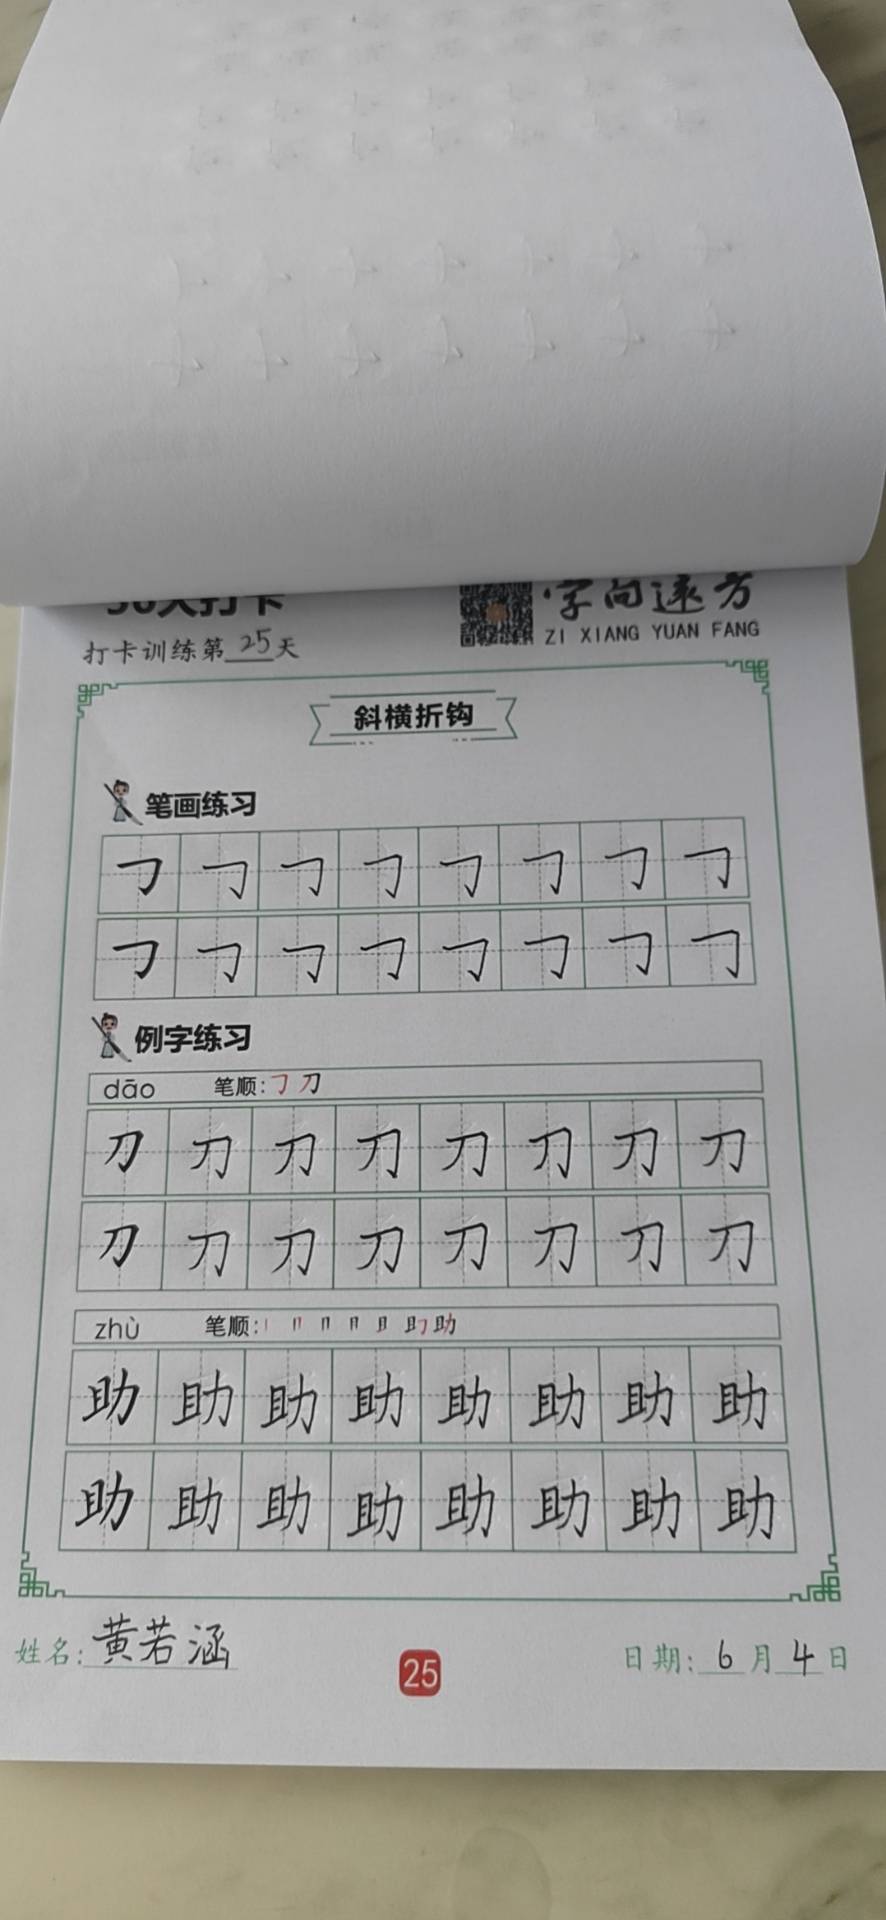 天打卡
字向远方
ZI XIANG YUAN FANG
打卡训练第25天
斜横折钩
笔画练习
㇆ ㇆ ㇆ ㇆ ㇆ ㇆ ㇆ ㇆
㇆ ㇆ ㇆ ㇆ ㇆ ㇆ ㇆ ㇆
例字练习
dāo 笔顺:㇆ 刀
刀 刀 刀 刀 刀 刀 刀 刀
刀 刀 刀 刀 刀 刀 刀 刀
zhù 笔顺: 助
助 助 助 助 助 助 助 助
助 助 助 助 助 助 助 助
姓名:黄若涵
25
日期:6月4日